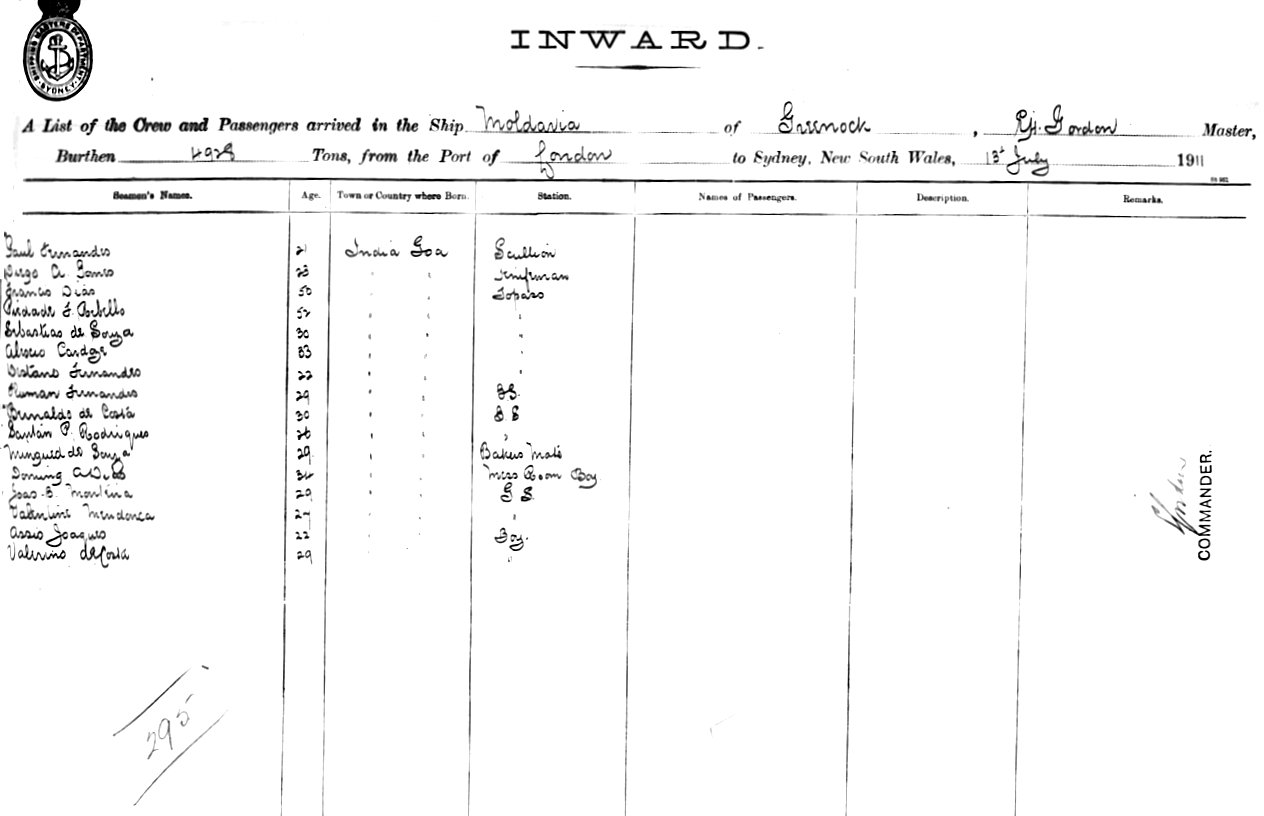 SHIPPING MASTERS DEPARTMENT SYDNEY
INWARD.
A List of the Crew and Passengers arrived in the Ship Moldavia of Greenock, Gordon Master,
Burthen 4928 Tons, from the Port of London to Sydney, New South Wales, 13th July 1911
Seamen's Names. Age. Town or Country where Born. Station. Names of Passengers. Description. Remarks.
Paul Fernandes 21 India Goa Scullion
Diego A. Gomes 23 " "
Francis Dias 50 " " Topaso
Piedade F. Rebello 52 " " "
Sebastiao de Souza 30 " " "
Cardoze " " "
Fernandes 22 " " "
Fernandes 29 " " GS.
de Costa 30 " " GS
Santan P. Rodrigues 26 " " "
de Souza 29 " " Bakers Mate
Doming A. Dias 34 " " Mess Room Boy
Joao B. Monteiro 29 " " GS.
Valentine Mendonca 27 " " "
Assis Joaques 22 " " Boy.
de Costa 29 " " "
COMMANDER.
295